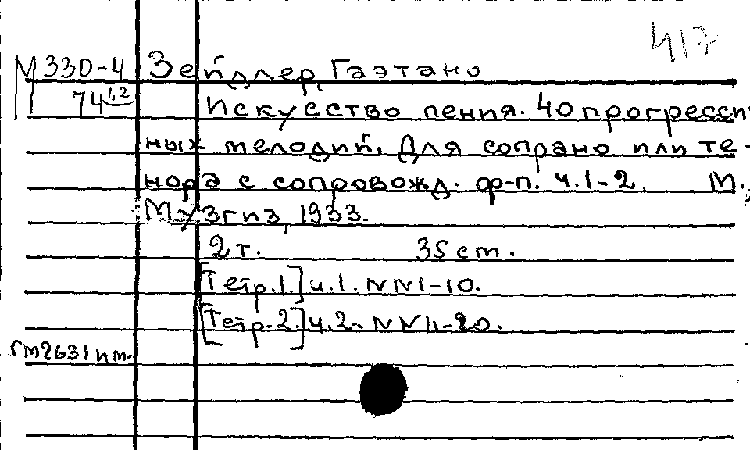 417
М 330-4 Зейдлер, Гаэтано
74 1,2 Искусство пения. 40 прогресси
ных мелодий. Для сопрано или те-
нора с сопровожд. ф-п. ч.1-2. М.,
Музгиз, 1933.
2 т. 35 см.
[Тетр.1] ч.1. NN1-10.
[Тетр.2.] ч.2. NN11-20.